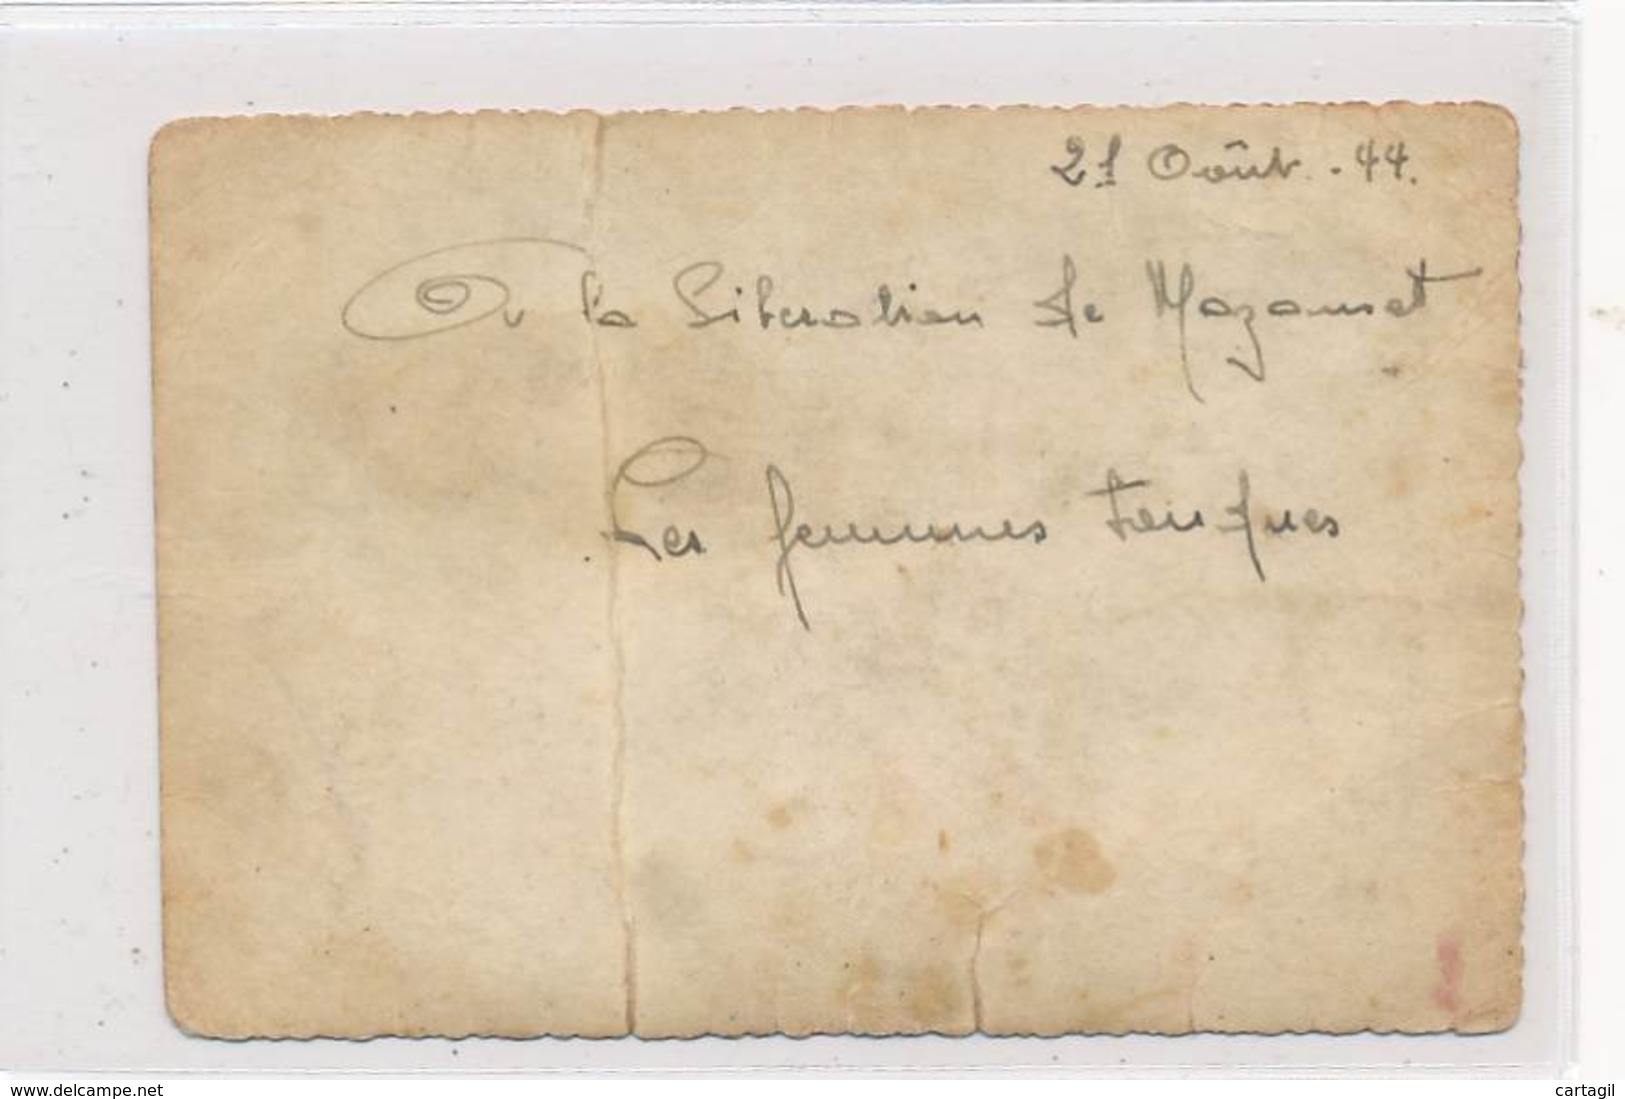 21 Août - 44.
A la Liberation de Mazamet
Les femmes tondues
www.delcampe.net
cartagil